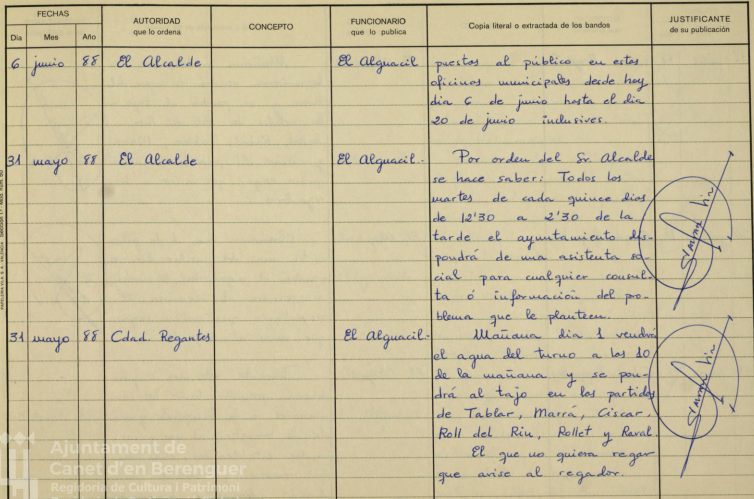 FECHAS
AUTORIDAD
que lo ordena
CONCEPTO
FUNCIONARIO
que lo publica
Copia literal o extractada de los bandos
JUSTIFICANTE
de su publicación
Día Mes Año
6 junio 88 El Alcalde El Alguacil puestos al público en estas
oficinas municipales desde hoy
dia 6 de junio hasta el dia
20 de junio inclusives.
31 mayo 88 El Alcalde El Alguacil.- Por orden del Sr. Alcalde
se hace saber: Todos los
martes de cada quince dias
de 12'30 a 2'30 de la
tarde el ayuntamiento dis-
pondrá de una asistenta so-
cial para cualquier consul-
ta ó información del pro-
blema que le planteen.
31 mayo 88 Cdad. Regantes El Alguacil- Mañana dia 1 vendrá
el agua del turno a las 10
de la mañana y se pon-
drá al tajo en las partidas
de Tablar, Marrá, Ciscar,
Roll del Riu, Rollet y Raval.
El que no quiera regar
que avise al regador.
Ajuntament de
Canet d'en Berenguer
Regidoria de Cultura i Patrimoni